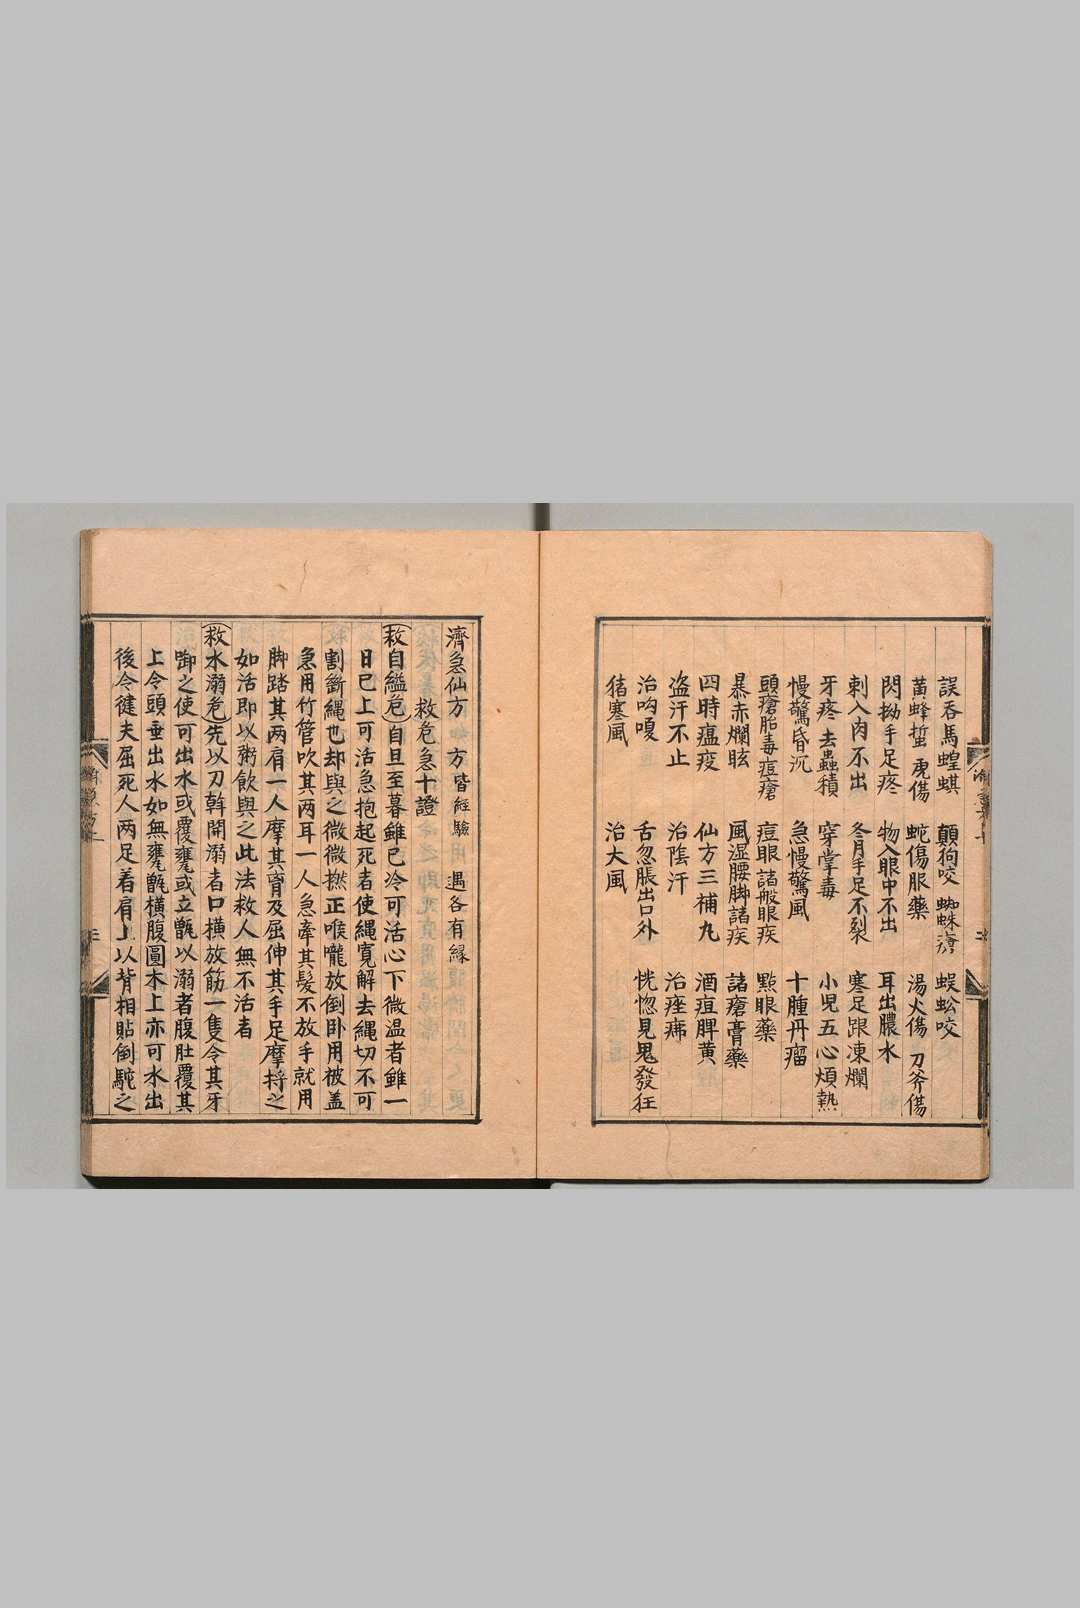 誤吞馬蝗蜞 顛狗咬 蜘蛛瘡 蜈蚣咬
黃蜂蜇 虎傷 蛇傷服藥 湯火傷 刀斧傷
閃拗手足疼 物入眼中不出 耳出膿水
刺入肉不出 冬月手足不裂 寒足跟凍爛
牙疼 去蟲積 穿掌毒 小児五心煩熱
慢驚昏沉 急慢驚風 十腫丹瘤
頭瘡胎毒痘瘡 痘眼 諸般眼疾 㸃眼藥
暴赤爛眩 風湿腰脚諸疾 諸瘡膏藥
四時瘟疫 仙方三補丸 酒疸脾黄
盗汗不止 治陰汗 治痊疿
治呴嗄 舌忽脹出口外 恍惚見鬼發狂
猪寒風 治大風
濟急仙方 方皆經驗 遇各有緣
救危急十證
救自縊危 自旦至暮雖已冷可活心下微温者雖一
日已上可活急抱起死者使縄寛解去縄切不可
割斷縄也却與之微微撚正喉嚨放倒卧用被盖
急用竹管吹其两耳一人急牽其髪不放手就用
脚踏其两肩一人摩其胷及屈伸其手足摩捋之
如活即以粥飲與之此法救人無不活者
救水溺危 先以刀斡開溺者口横放筋一隻令其牙
啣之使可出水或覆甕或立甑以溺者腹肚覆其
上令頭垂出水如無甕甑横腹圓木上亦可水出
後令健夫屈死人两足着肩上以背相貼倒駝之